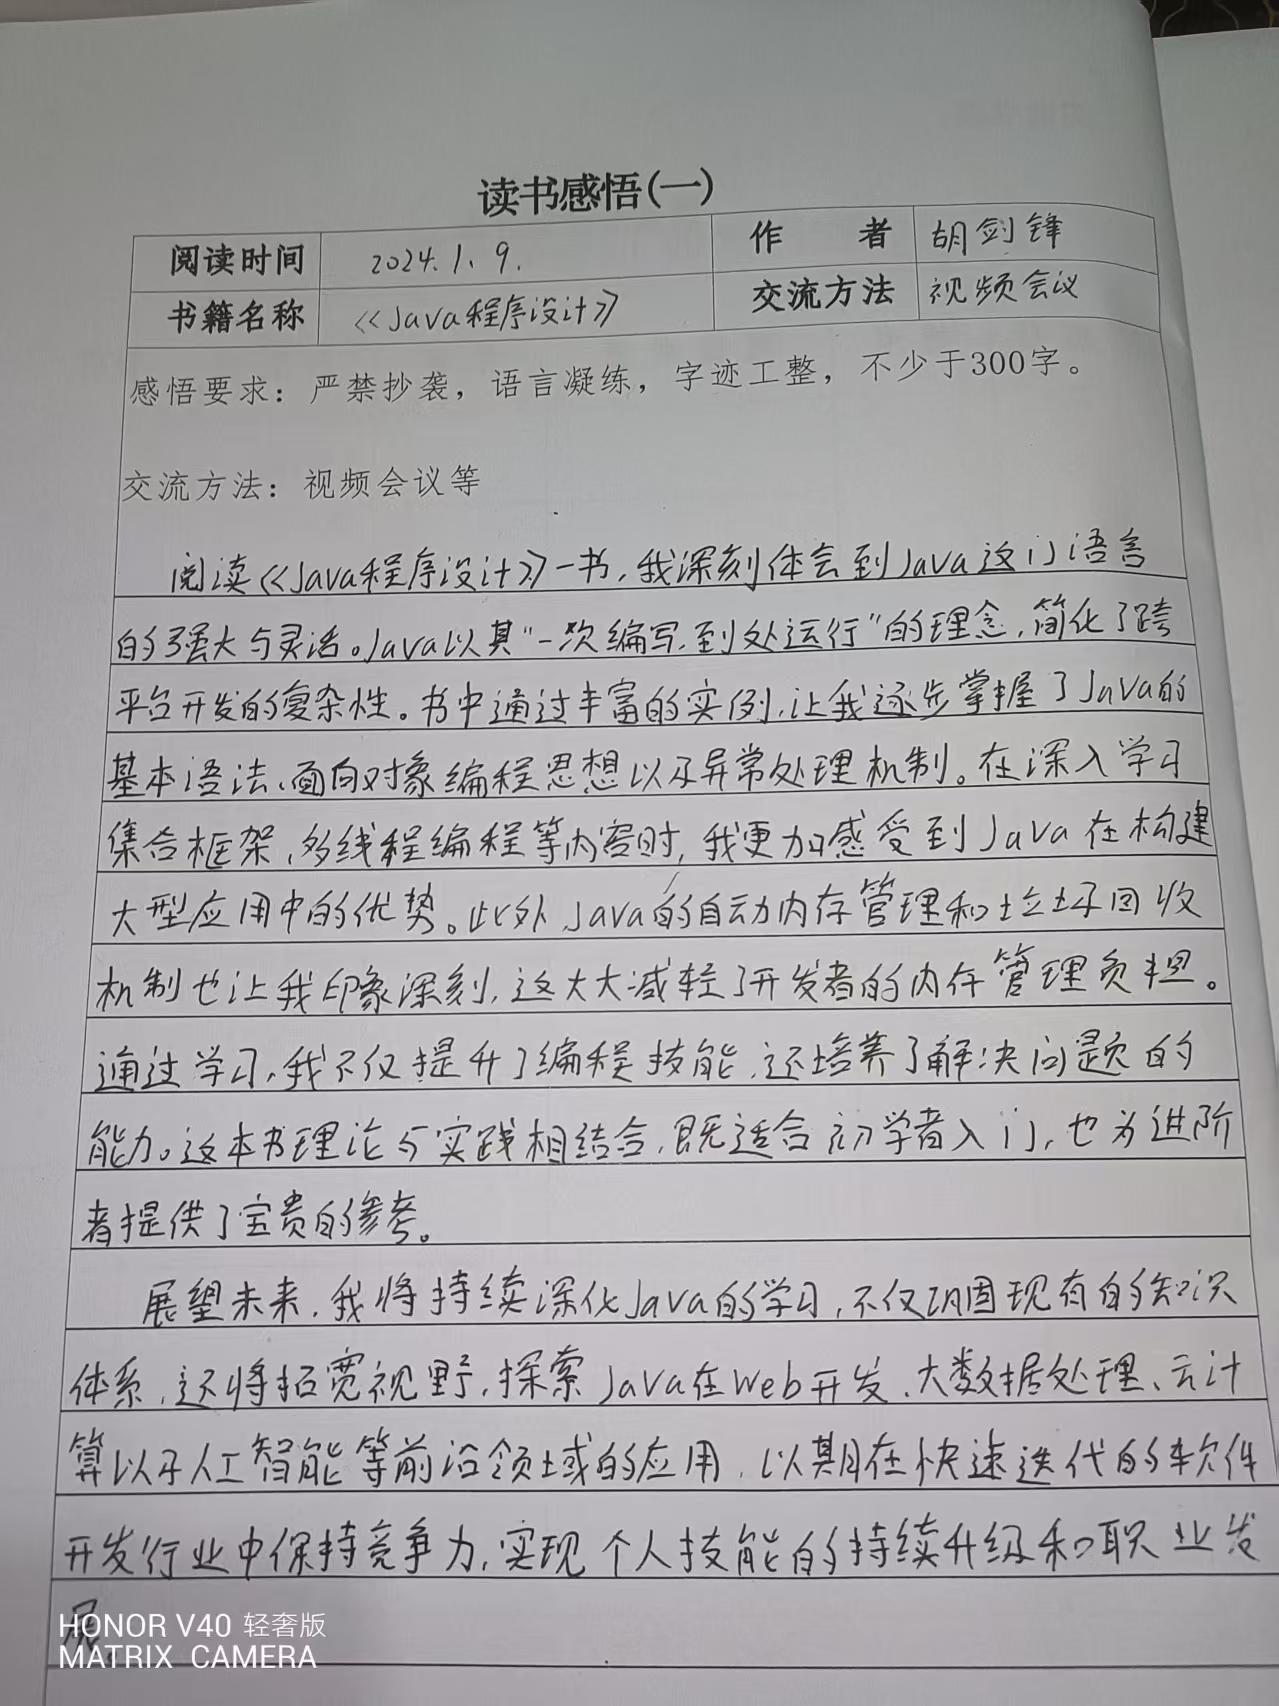 读书感悟(一)
阅读时间 2024.1.9. 作 者 胡剑锋
书籍名称 《Java程序设计》 交流方法 视频会议
感悟要求：严禁抄袭，语言凝练，字迹工整，不少于300字。
交流方法：视频会议等
阅读《Java程序设计》一书，我深刻体会到Java这门语言
的强大与灵活。Java以其“一次编写，到处运行”的理念，简化了跨
平台开发的复杂性。书中通过丰富的实例，让我逐步掌握了Java的
基本语法、面向对象编程思想以及异常处理机制。在深入学习
集合框架、多线程编程等内容时，我更加感受到Java在构建
大型应用中的优势。此外，Java的自动内存管理和垃圾回收
机制也让我印象深刻，这大大减轻了开发者的内存管理负担。
通过学习，我不仅提升了编程技能，还培养了解决问题的
能力。这本书理论与实践相结合，既适合初学者入门，也为进阶
者提供了宝贵的参考。
展望未来，我将持续深化Java的学习，不仅巩固现有的知识
体系，还将拓宽视野，探索Java在Web开发、大数据处理、云计
算以及人工智能等前沿领域的应用，以期在快速迭代的软件
开发行业中保持竞争力，实现个人技能的持续升级和职业发
展。
HONOR V40 轻奢版
MATRIX CAMERA